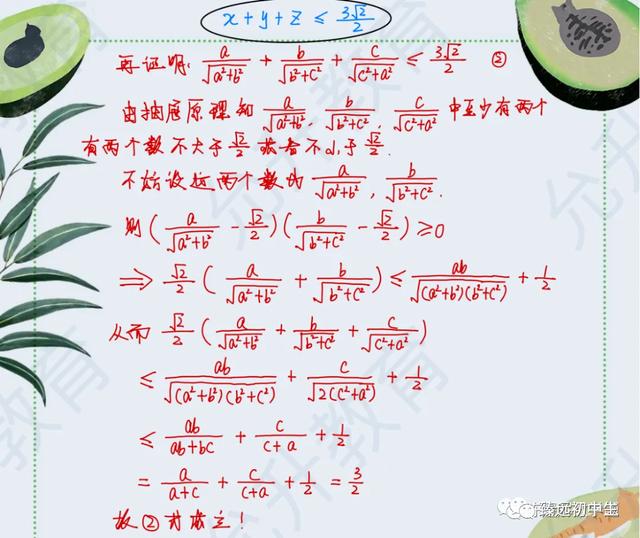 x+y+z ≤ 3√2/2
再证明: a/√(a²+b²) + b/√(b²+c²) + c/√(c²+a²) ≤ 3√2/2 ②
由抽屉原理知 a/√(a²+b²), b/√(b²+c²), c/√(c²+a²) 中至少有两个
有两个数不大于 √2/2 或者不小于 √2/2.
不妨设这两个数为 a/√(a²+b²), b/√(b²+c²).
则 (a/√(a²+b²) - √2/2)(b/√(b²+c²) - √2/2) ≥ 0
⟹ √2/2 (a/√(a²+b²) + b/√(b²+c²)) ≤ ab/√((a²+b²)(b²+c²)) + 1/2
从而 √2/2 (a/√(a²+b²) + b/√(b²+c²) + c/√(c²+a²))
≤ ab/√((a²+b²)(b²+c²)) + c/√(2(c²+a²)) + 1/2
≤ ab/(ab+bc) + c/(c+a) + 1/2
= a/(a+c) + c/(c+a) + 1/2 = 3/2
故②式成立!
臻远初中生
允升教育
允升教育
允升教育